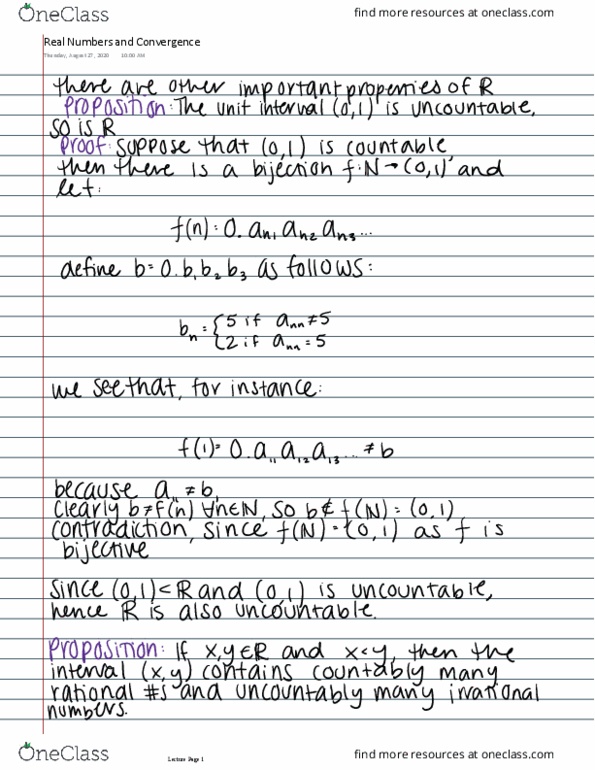 OneClass find more resources at oneclass.com
Real Numbers and Convergence
Thursday, August 27, 2020 10:00 AM
there are other important properties of ℝ
Proposition: The unit interval (0,1) is uncountable,
so is ℝ
Proof: suppose that (0,1) is countable
then there is a bijection f:ℕ→(0,1) and
let:
f(n)=0.aₙ₁ aₙ₂ aₙ₃...
define b=0.b₁b₂b₃ as follows:
bₙ = {5 if aₙₙ≠5
{2 if aₙₙ=5
we see that, for instance:
f(1)=0.a₁₁a₁₂a₁₃...≠b
because a₁₁≠b₁
Clearly b≠f(n) ∀n∈ℕ, so b∉f(ℕ)=(0,1)
contradiction, since f(ℕ)=(0,1) as f is
bijective
Since (0,1)<ℝ and (0,1) is uncountable,
hence ℝ is also uncountable.
Proposition: If x,y∈ℝ and x<y, then the
interval (x,y) contains countably many
rational #s and uncountably many irrational
numbers.
OneClass Lecture Page 1 find more resources at oneclass.com